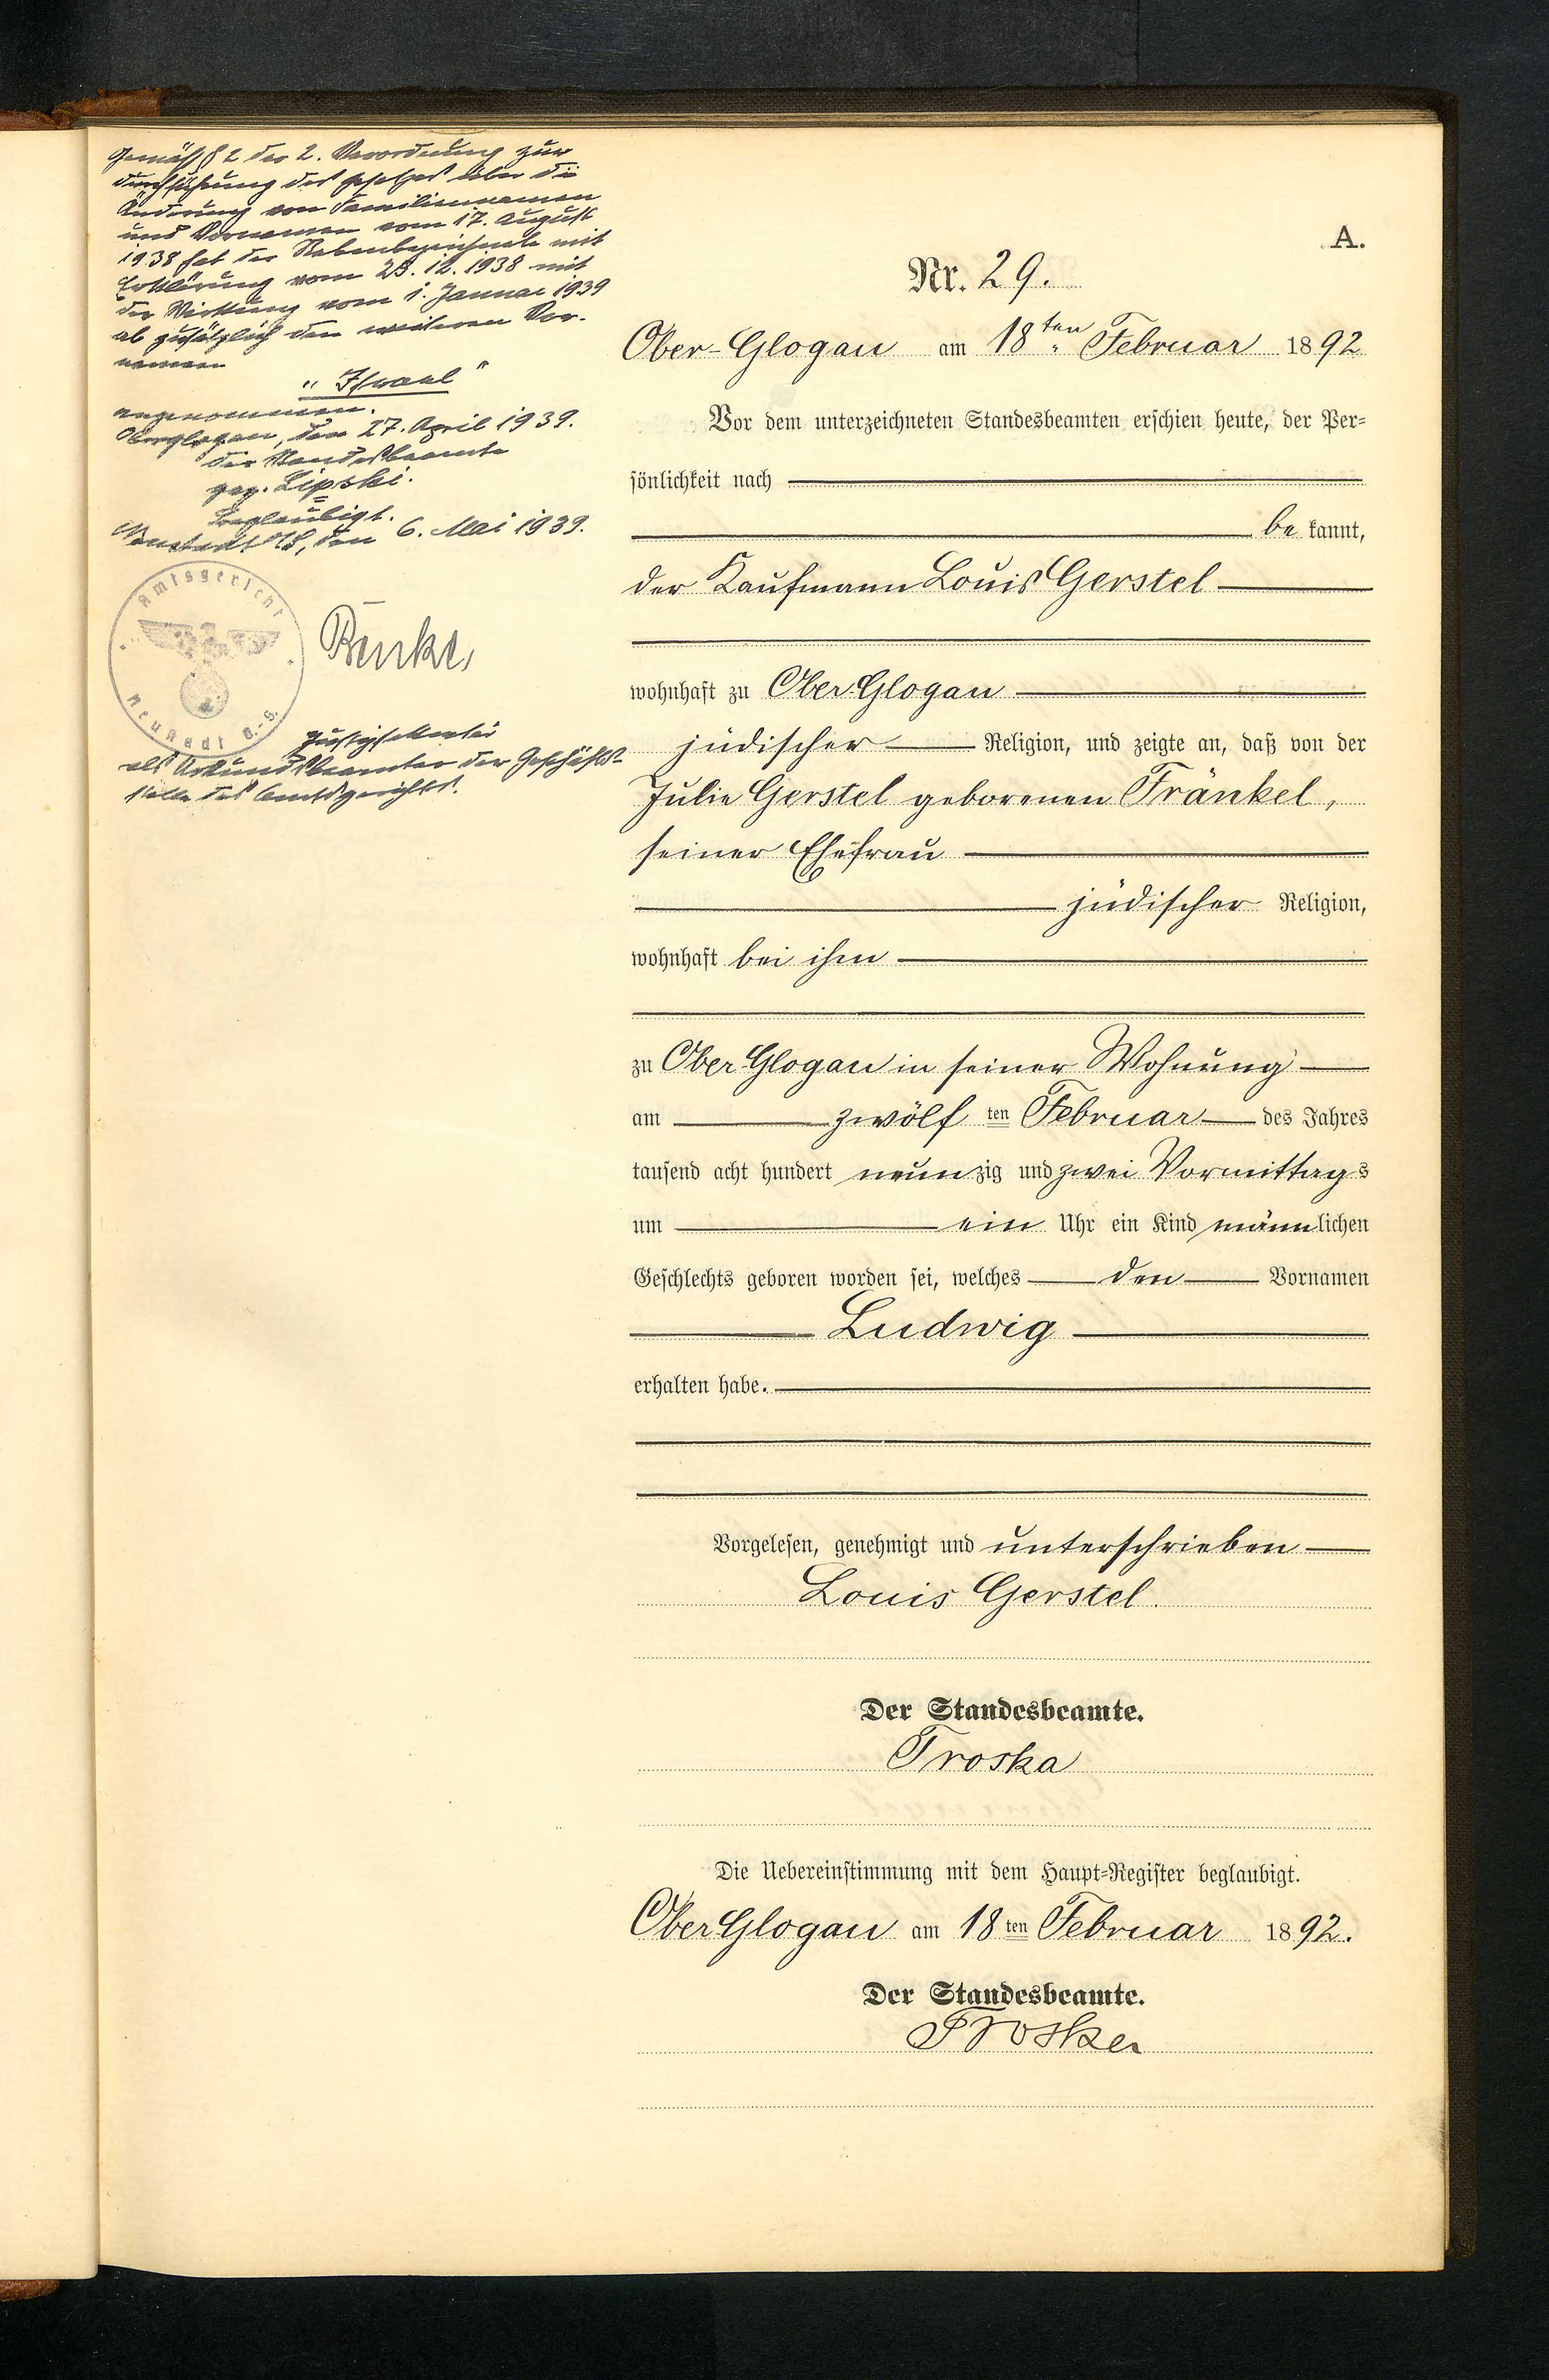 Gemäß § 2 der 2. Verordnung zur
Durchführung des Gesetzes über die
Änderung von Familiennamen
und Vornamen vom 17. August
1938 hat der Nebenbezeichnete mit
Erklärung vom 23. 12. 1938 mit
der Wirkung vom 1. Januar 1939
ab zusätzlich den weiteren Vor-
namen
"Israel"
angenommen.
Oberglogau, den 27. April 1939.
Der Standesbeamte
gez. Lipski.
Beglaubigt.
Neustadt OS, den 6. Mai 1939.
Amtsgericht
Neustadt O.-S.
Justizsekretär
als Urkundsbeamter der Geschäfts-
stelle des Amtsgerichts.
A.
Nr. 29.
Ober-Glogau am 18ten Februar 1892
Vor dem unterzeichneten Standesbeamten erschien heute, der Per-
sönlichkeit nach
be kannt,
der Kaufmann Louis Gerstel
wohnhaft zu Ober-Glogau
jüdischer Religion, und zeigte an, daß von der
Julie Gerstel geborenen Fränkel,
seiner Ehefrau
jüdischer Religion,
wohnhaft bei ihm
zu Ober-Glogau in seiner Wohnung
am zwölf ten Februar des Jahres
tausend acht hundert neun zig und zwei Vormittag s
um ein Uhr ein Kind männ lichen
Geschlechts geboren worden sei, welches den Vornamen
Ludwig
erhalten habe.
Vorgelesen, genehmigt und unterschrieben
Louis Gerstel.
Der Standesbeamte.
Troska
Die Uebereinstimmung mit dem Haupt-Register beglaubigt.
Ober Glogau am 18 ten Februar 1892.
Der Standesbeamte.
Troska